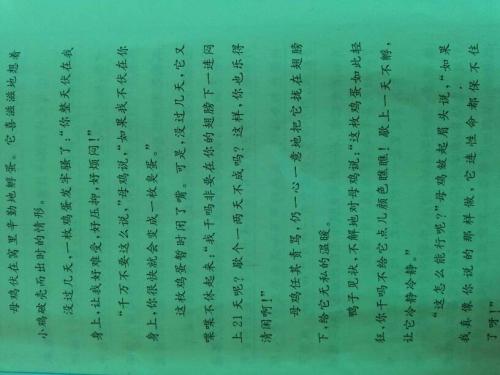 母鸡伏在窝里辛勤地孵蛋。它喜滋滋地想着
小鸡破壳而出时的情形。
没过几天,一枚鸡蛋发牢骚了:“你整天伏在我
身上,让我好难受,好压抑,好烦闷!”
“千万不要这么说,”母鸡说,“如果我不伏在你
身上,你很快就会变成一枚臭蛋。”
这枚鸡蛋暂时闭了嘴。可是,没过几天,它又
喋喋不休起来:“我干吗非要在你的翅膀下一连闷
上21天呢?歇个一两天不成吗?这样,你也乐得
清闲啊!”
母鸡任其责骂,仍一心一意地把它拢在翅膀
下,给它无私的温暖。
鸭子见状,不解地对母鸡说:“这枚鸡蛋如此轻
狂,你干吗不给它点儿颜色瞧瞧!歇上一天不孵,
让它冷静冷静。”
“这怎么能行呢?”母鸡皱起眉头说,“如果
我真像你说的那样做,它连性命都保不住
了呀!”